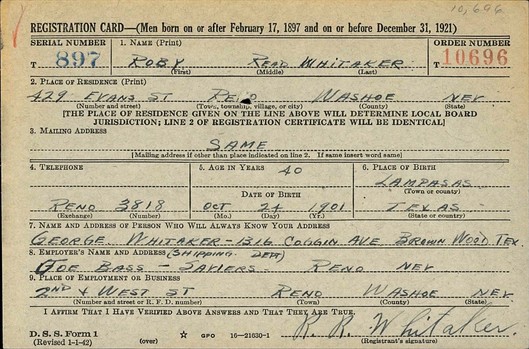 10,696
REGISTRATION CARD—(Men born on or after February 17, 1897 and on or before December 31, 1921)
SERIAL NUMBER 1. NAME (Print) ORDER NUMBER
T 897 ROBY READ WHITAKER T 10696
(First) (Middle) (Last)
2. PLACE OF RESIDENCE (Print)
429 EVANS ST RENO WASHOE NEV
(Number and street) (Town, township, village, or city) (County) (State)
[THE PLACE OF RESIDENCE GIVEN ON THE LINE ABOVE WILL DETERMINE LOCAL BOARD
JURISDICTION; LINE 2 OF REGISTRATION CERTIFICATE WILL BE IDENTICAL]
3. MAILING ADDRESS
SAME
[Mailing address if other than place indicated on line 2. If same insert word same]
4. TELEPHONE 5. AGE IN YEARS 40 6. PLACE OF BIRTH
LAMPASAS
DATE OF BIRTH (Town or county)
RENO 3818 OCT 24 1901 TEXAS
(Exchange) (Number) (Mo.) (Day) (Yr.) (State or country)
7. NAME AND ADDRESS OF PERSON WHO WILL ALWAYS KNOW YOUR ADDRESS
GEORGE WHITAKER - 1316 COGGIN AVE BROWN WOOD, TEX.
8. EMPLOYER'S NAME AND ADDRESS (SHIPPING DEPT)
JOE BASS - SAVIERS RENO NEV
9. PLACE OF EMPLOYMENT OR BUSINESS
2ND & WEST ST RENO WASHOE NEV
(Number and street or R. F. D. number) (Town) (County) (State)
I AFFIRM THAT I HAVE VERIFIED ABOVE ANSWERS AND THAT THEY ARE TRUE.
R. R. Whitaker.
D. S. S. Form 1
(Revised 1-1-42) (over) ☆ GPO 16—21630-1 (Registrant's signature)